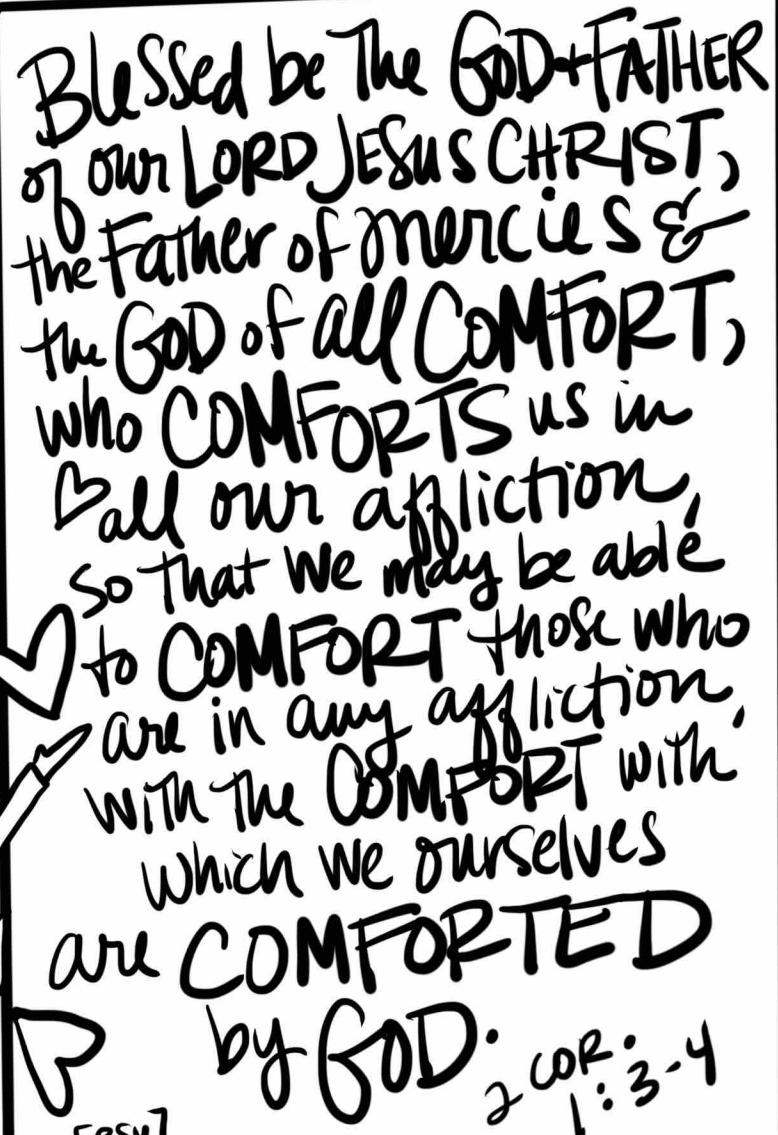 Blessed be The GOD + FATHER
of our LORD JESUS CHRIST,
the Father of mercies &
the GOD of all COMFORT,
who COMFORTS us in
all our affliction,
so that we may be able
to COMFORT those who
are in any affliction,
with the COMFORT with
which we ourselves
are COMFORTED
by GOD.
2 COR.
1:3-4
[ESV]